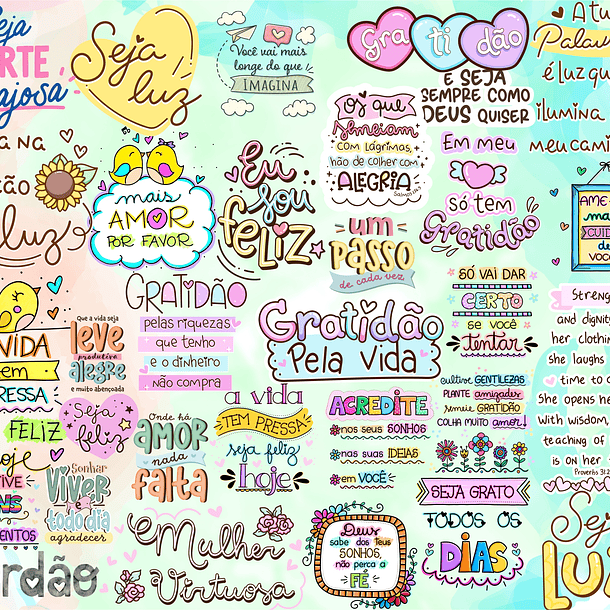 Seja
luz
Você vai mais
longe do que
IMAGINA
Gratidão
E SEJA
SEMPRE COMO
DEUS QUISER
A tu
Palav
é luz qu
ilumina
meu cami
os que
semeiam
com lágrimas,
hão de colher com
ALEGRIA
Em meu
só tem
Gratidão
luz
mais
AMOR
POR FAVOR
Eu
sou
feliz
um
passo
de cada vez
AME-
ma
CUID
de
VOC
GRATIDÃO
pelas riquezas
que tenho
e o dinheiro
não compra
Gratidão
Pela vida
SÓ VAI DAR
CERTO
SE VOCÊ
tentar
Streng
and dignity
her clothin
she laughs
time to c
She opens he
With wisdom,
teaching of
is on her
Proverbs 31:2
VIDA
em
RESSA
FELIZ
Que a vida seja
leve
produtiva
alegre
e muito abençoada
Seja
feliz
Onde há
AMOR
nada
falta
a vida
TEM PRESSA
seja feliz
hoje
ACREDITE
nos seus SONHOS
nas suas IDEIAS
em VOCÊ
cultive GENTILEZAS
PLANTE amizades
semeie GRATIDÃO
COLHA MUITO amor!
SEJA GRATO
TODOS OS
DIAS
Sonhar
VIVER
e
todo dia
agradecer
Mulher
Virtuosa
Deus
sabe dos teus
SONHOS,
não perca a
FÉ
Seja
LUZ
rdão